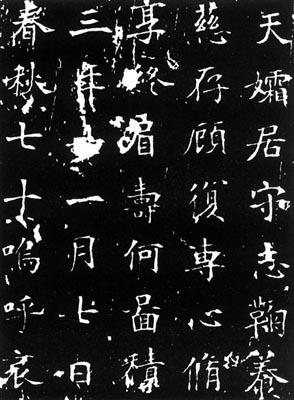 天孀居守志鞠養
慈存顧復專心脩
享終眉壽何啚積
三年一月七日
春秋七十嗚呼哀